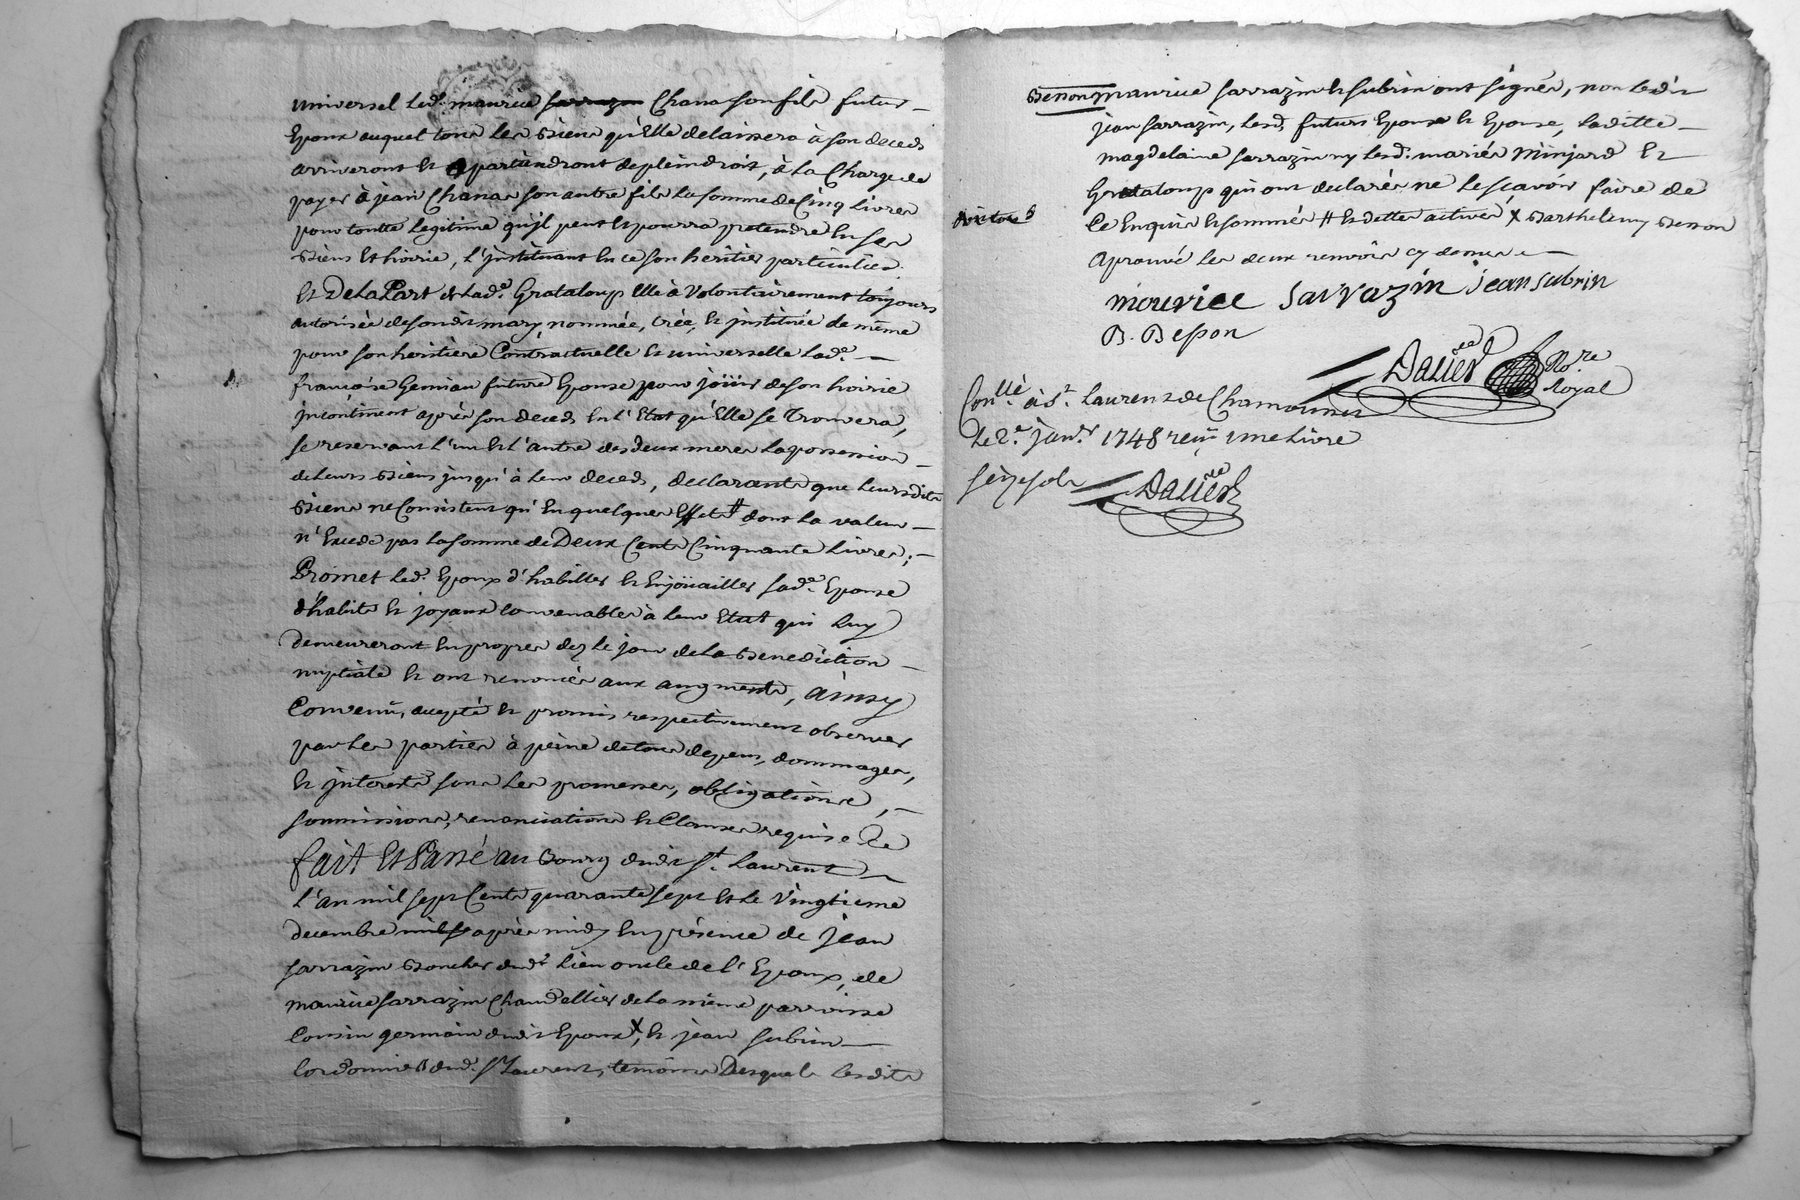 universel led. maurice sarrazin Chana son fils futur
Epoux auquel tous les Biens qu'Elle delaissera à son deceds
arriveront et apartiendront de plein droit, à la Charge de
payer à jean Chana son autre fils la somme de Cinq Livres
pour toutte legitime qu'jl peut et pourra pretendre En ses
Biens et hoirie, l'jnstituant En ce son heritier particulier.
Et De La Part de lad.e Grataloup Elle à Volontairement toujours
autorisée de son dit mary, nommée, crée, et jnstituée de même
pour son heritiere Contractuelle et universelle lad.e
françoise Geniau future Epouse pour joüir de son hoirie
jncontinent après son deceds En l'Etat qu'Elle se Trouvera,
se reservant l'un et l'autre des deux meres la possession
de leurs Biens jusqu'à leur deceds, declarants que leursdits
Biens ne Consistent qu'En quelques Effets # dont la valeur
n'Excede pas la somme de Deux Cents Cinquante Livres;
Promet led. Epoux d'habiller et Enjoüailler sad.e Epouse
d'habits et joyaux convenables à leur Etat qui luy
demeureront En propres dez le jour de la Benediction
nuptiale et ont renoncés aux augments, ainsy
Convenu, accepté et promis respectivement observer
par les parties à peine de tous depens, dommages,
et jnterests sous les promesses, obligations,
soumissions, renonciations et Clauses requises
fait Et Passé au Bourg dudit St. Laurent
l'an mil sept Cents quarante sept Et le Vingtieme
decembre après midy En présence de jean
sarrazin Boucher dud.t lieu oncle de l'Epoux, de
maurice sarrazin Chandellier de la même parroisse
Cousin germain dudit Epoux X, et jean subrin
Cordonnier dud. St Laurent, temoins Desquels lesdits
Besson maurice sarrazin et subrin ont signés, non ledit
jean sarrazin, lesd. futurs Epoux et Epouse, laditte
magdelaine sarrazin ny lesd. mariés Minjard Et
Grataloup qui ont declarés ne le scavoir faire de
Ce Enquis et sommés # et dettes actives X Barthelemy Besson
Aprouvé les deux renvois cy dessus
mouvice sarrazin jean subrin
B. Besson
Dalier No.re
Royal
Con.llé à St. Laurent de Chamousset
le 2.e janv.r 1748 reçu une Livre
seize sols Dalier